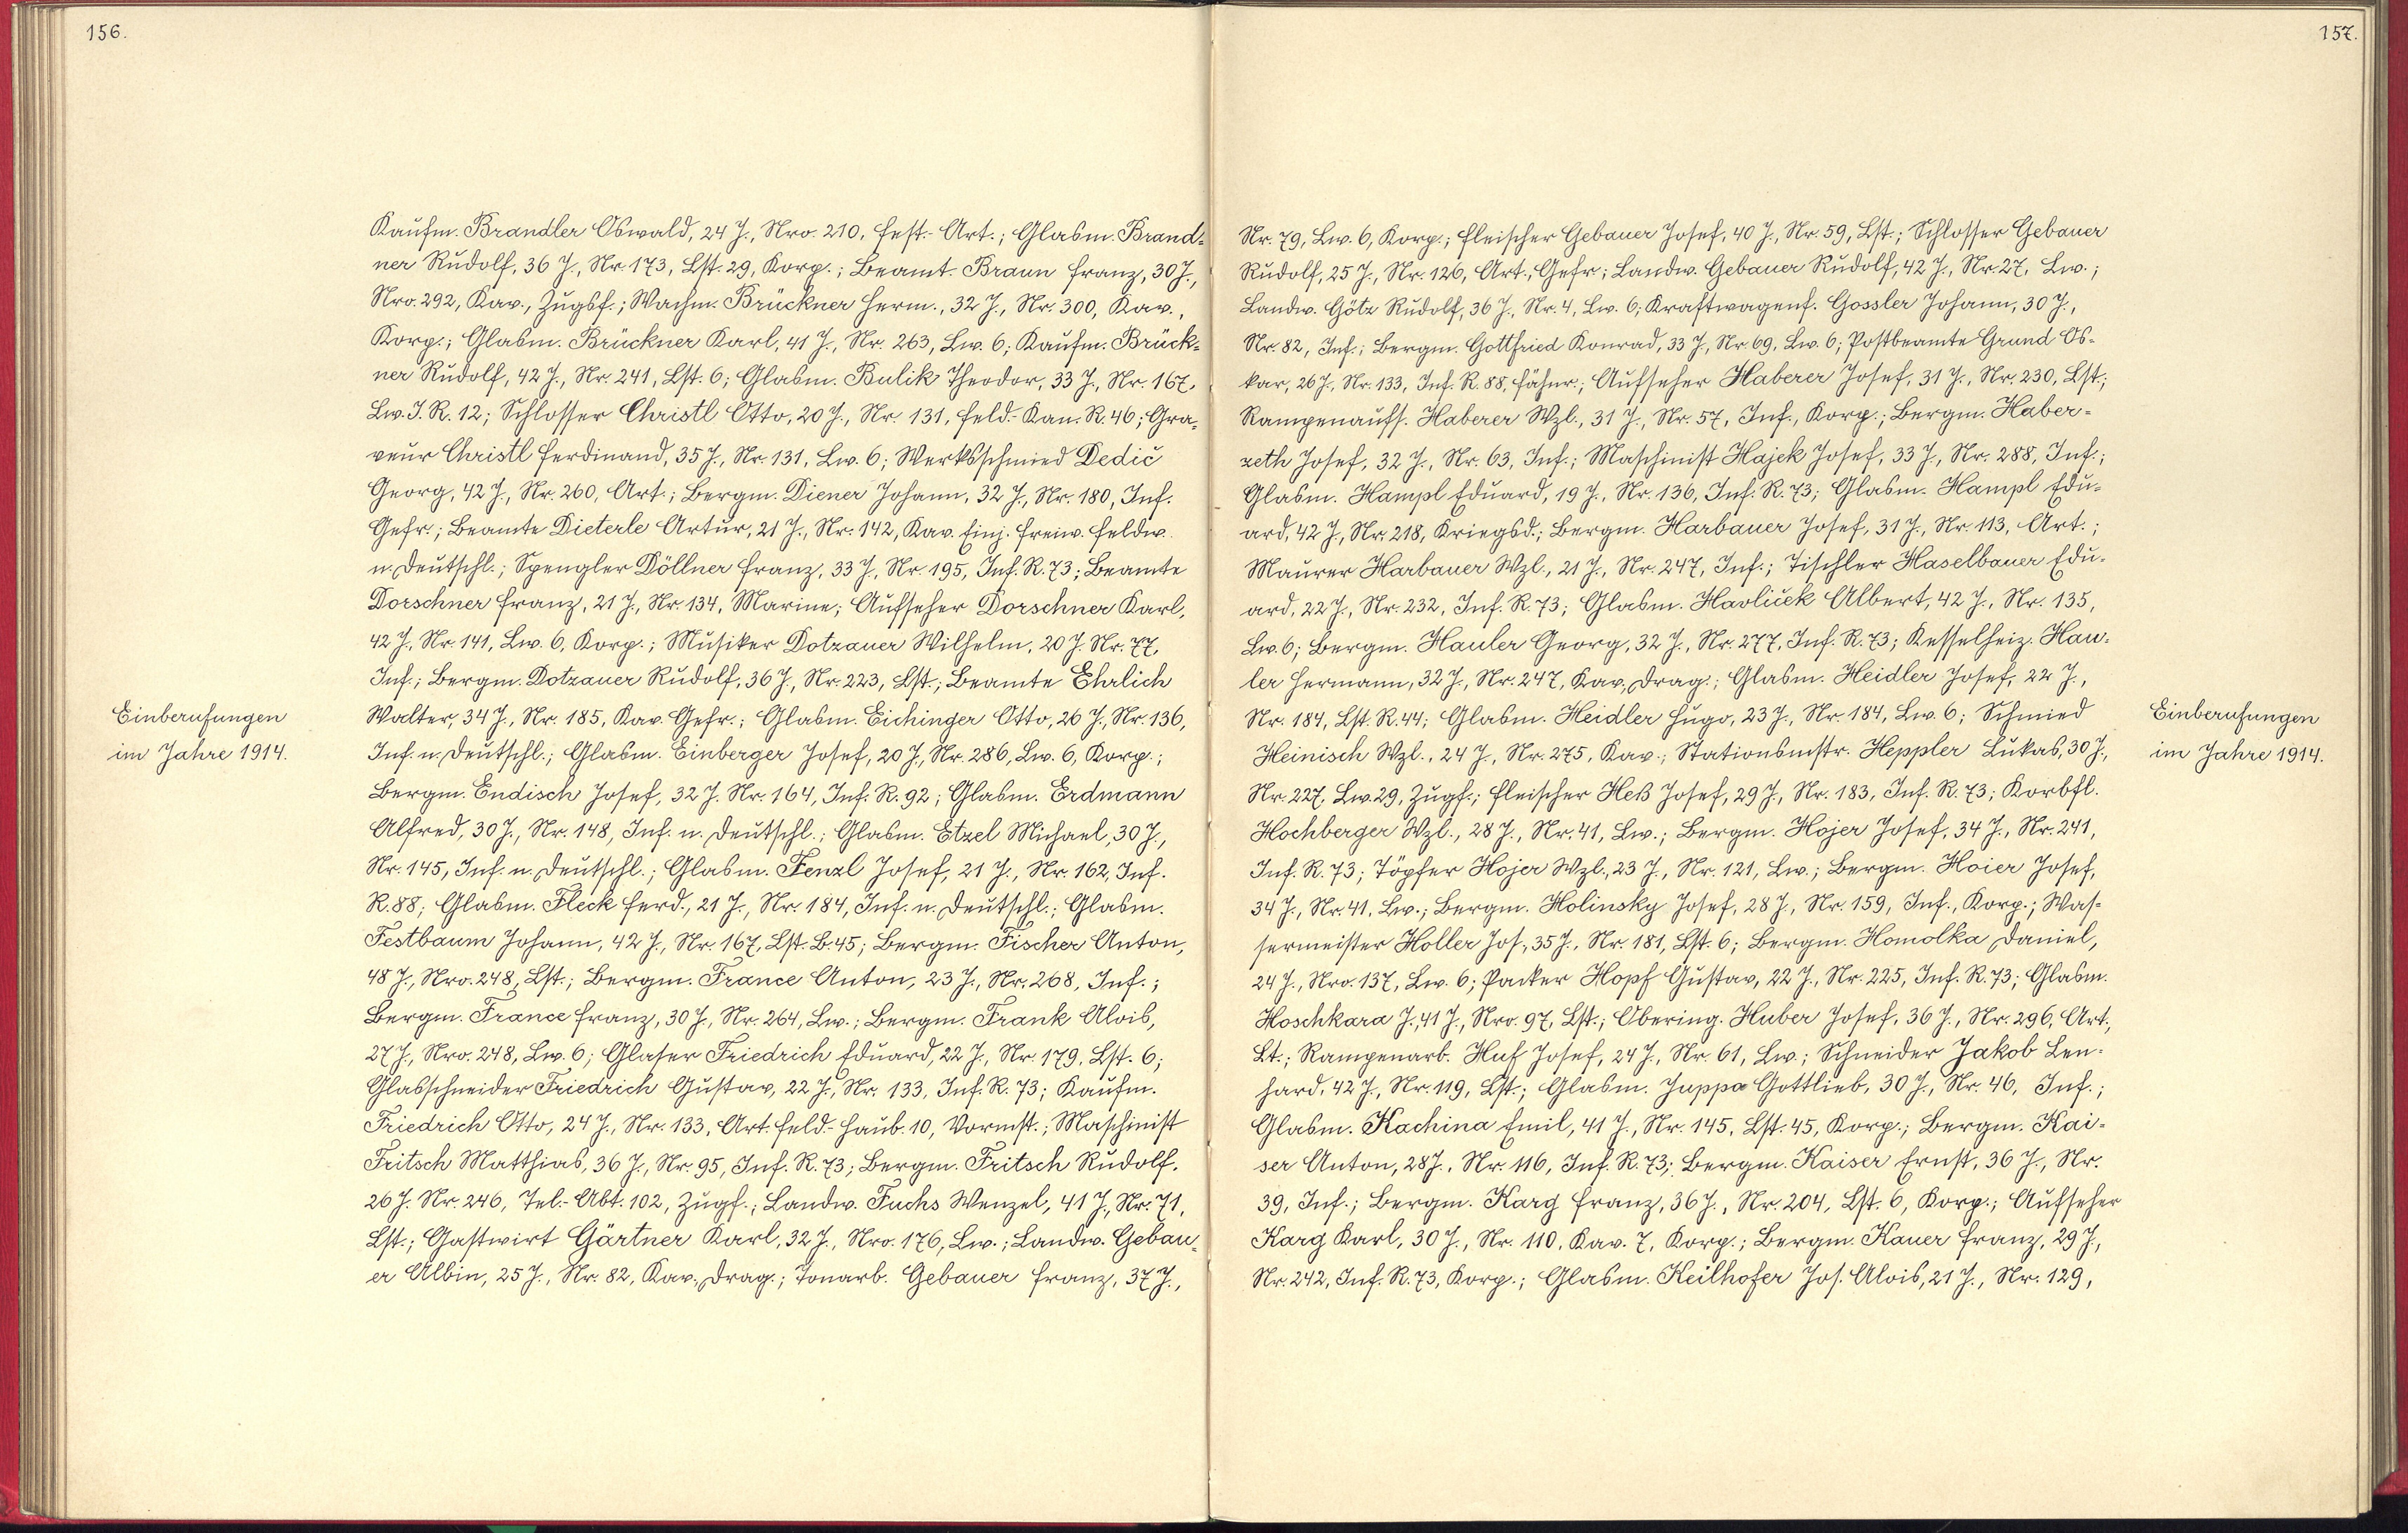 156.
Kaufm. Brandler Oswald, 24 J., Nro. 210, Fest.-Art.; Glasm. Brand-
ner Rudolf, 36 J., Nr. 173, Lst. 29, Korp.; Beamt. Braun Franz, 30 J.,
Nro. 292, Kav., Zugsf.; Wachm. Brückner Herm., 32 J., Nr. 300, Kav.,
Korp.; Glasm. Brückner Karl, 41 J., Nr. 263, Lw. 6; Kaufm. Brück-
ner Rudolf, 42 J., Nr. 241, Lst. 6; Glasm. Bulik Theodor, 33 J., Nr. 167,
Lw. J. R. 12; Schlosser Christl Otto, 20 J., Nr. 131, Feld-Kan. R. 46; Gra-
veur Christl Ferdinand, 35 J., Nr. 131, Lw. 6; Werksschmied Dedič
Georg, 42 J., Nr. 260, Art.; Bergm. Diener Johann, 32 J., Nr. 180, Inf.
Gefr.; Beamte Dieterle Artur, 21 J., Nr. 142, Kav. Einj. freiw. Feldw.
n. Deutschl.; Spengler Döllner Franz, 33 J., Nr. 195, Inf. R. 73; Beamte
Dorschner Franz, 21 J., Nr. 134, Marine; Aufseher Dorschner Karl,
42 J., Nr. 141, Lw. 6, Korp.; Musiker Dotzauer Wilhelm, 20 J. Nr. 77,
Inf.; Bergm. Dotzauer Rudolf, 36 J., Nr. 223, Lst.; Beamte Ehrlich
Einberufungen
im Jahre 1914.
Walter, 34 J., Nr. 185, Kav. Gefr.; Glasm. Eichinger Otto, 26 J., Nr. 136,
Inf. n. Deutschl.; Glasm. Einberger Josef, 20 J., Nr. 286, Lw. 6, Korp.;
Bergm. Endisch Josef, 32 J. Nr. 164, Inf. R. 92; Glasm. Erdmann
Alfred, 30 J., Nr. 148, Inf. n. Deutschl.; Glasm. Etzel Michael, 30 J.,
Nr. 145, Inf. n. Deutschl.; Glasm. Fenzl Josef, 21 J., Nr. 162, Inf.
R. 88; Glasm. Fleck Ferd., 21 J., Nr. 184, Inf. n. Deutschl.; Glasm.
Festbaum Johann, 42 J., Nr. 167, Lst. B. 45; Bergm. Fischer Anton,
48 J., Nro. 248, Lst.; Bergm. France Anton, 23 J., Nr. 268, Inf.;
Bergm. France Franz, 30 J., Nr. 264, Lw.; Bergm. Frank Alois,
27 J., Nro. 248, Lw. 6; Glaser Friedrich Eduard, 22 J., Nr. 179, Lst. 6;
Glasschneider Friedrich Gustav, 22 J., Nr. 133, Inf. R. 73; Kaufm.
Friedrich Otto, 24 J., Nr. 133, Art. Feld-Haub. 10, Vormst.; Maschinist
Fritsch Matthias, 36 J., Nr. 95, Inf. R. 73; Bergm. Fritsch Rudolf,
26 J. Nr. 246, Tel.-Abt. 102, Zugf.; Landw. Fuchs Wenzel, 41 J., Nr. 71,
Lst.; Gastwirt Gärtner Karl, 32 J., Nro. 176, Lw.; Landw. Gebau-
er Albin, 25 J., Nr. 82, Kav. Drag.; Tonarb. Gebauer Franz, 37 J.,
157.
Nr. 79, Lw. 6, Korp.; Fleischer Gebauer Josef, 40 J., Nr. 59, Lst.; Schlosser Gebauer
Rudolf, 25 J., Nr. 126, Art., Gefr; Landw. Gebauer Rudolf, 42 J., Nr. 27, Lw.;
Landw. Götz Rudolf, 36 J., Nr. 4, Lw. 6; Kraftwagenf. Gossler Johann, 30 J.,
Nr. 82, Inf.; Bergm. Gottfried Konrad, 33 J., Nr. 69, Lw. 6; Postbeamte Grund Os-
kar, 26 J., Nr. 133, Inf. R. 88, Fähnr.; Aufseher Haberer Josef, 31 J., Nr. 230, Lst.;
Rampenaufs. Haberer Wzl., 31 J., Nr. 57, Inf., Korp.; Bergm. Haber-
zeth Josef, 32 J., Nr. 63, Inf.; Maschinist Hajek Josef, 33 J, Nr. 288, Inf.;
Glasm. Hampl Eduard, 19 J., Nr. 136, Inf. R. 73; Glasm. Hampl Edu-
ard, 42 J., Nr. 218, Kriegsd.; Bergm. Harbauer Josef, 31 J., Nr. 113, Art.;
Maurer Harbauer Wzl., 21 J., Nr. 247, Inf.; Tischler Haselbauer Edu-
ard, 22 J., Nr. 232, Inf. R. 73; Glasm. Havliček Albert, 42 J., Nr. 135,
Lw. 6; Bergm. Hauler Georg, 32 J., Nr. 277, Inf. R. 73; Kesselheiz. Hau-
ler Hermann, 32 J., Nr. 247, Kav. Drag.; Glasm. Heidler Josef, 22 J.,
Nr. 184, Lst. R. 44; Glasm. Heidler Hugo, 23 J., Nr. 184, Lw. 6; Schmied
Einberufungen
im Jahre 1914.
Heinisch Wzl., 24 J., Nr. 275, Kav.; Stationsmstr. Heppler Lukas, 30 J.,
Nr. 227, Lw. 29, Zugf.; Fleischer Heß Josef, 29 J., Nr. 183, Inf. R. 73; Korbfl.
Hochberger Wzl., 28 J., Nr. 41, Lw.; Bergm. Hojer Josef, 34 J., Nr. 241,
Inf. R. 73; Töpfer Hojer Wzl., 23 J., Nr. 121, Lw.; Bergm. Hoier Josef,
34 J., Nr. 41, Lw.; Bergm. Holinsky Josef, 28 J., Nr. 159, Inf., Korp.; Was-
sermeister Holler Jos., 35 J., Nr. 181, Lst. 6; Bergm. Homolka Daniel,
24 J., Nro. 137, Lw. 6; Packer Hopf Gustav, 22 J., Nr. 225, Inf. R. 73; Glasm.
Hoschkara J. 41 J., Nro. 97, Lst.; Obering. Huber Josef, 36 J., Nr. 296, Art.,
Lt.; Rampenarb. Huf Josef, 24 J., Nr. 61, Lw.; Schneider Jakob Len-
hard, 42 J., Nr. 119, Lst.; Glasm. Juppa Gottlieb, 30 J., Nr. 46, Inf.;
Glasm. Kachina Emil, 41 J., Nr. 145, Lst. 45, Korp.; Bergm. Kai-
ser Anton, 28 J., Nr. 116, Inf. R. 73; Bergm. Kaiser Ernst, 36 J., Nr.
39, Inf.; Bergm. Karg Franz, 36 J., Nr. 204, Lst. 6, Korp.; Aufseher
Karg Karl, 30 J., Nr. 110, Kav. 7, Korp.; Bergm. Kauer Franz, 29 J,
Nr. 242, Inf. R. 73, Korp.; Glasm. Keilhofer Jos. Alois, 21 J., Nr. 129,